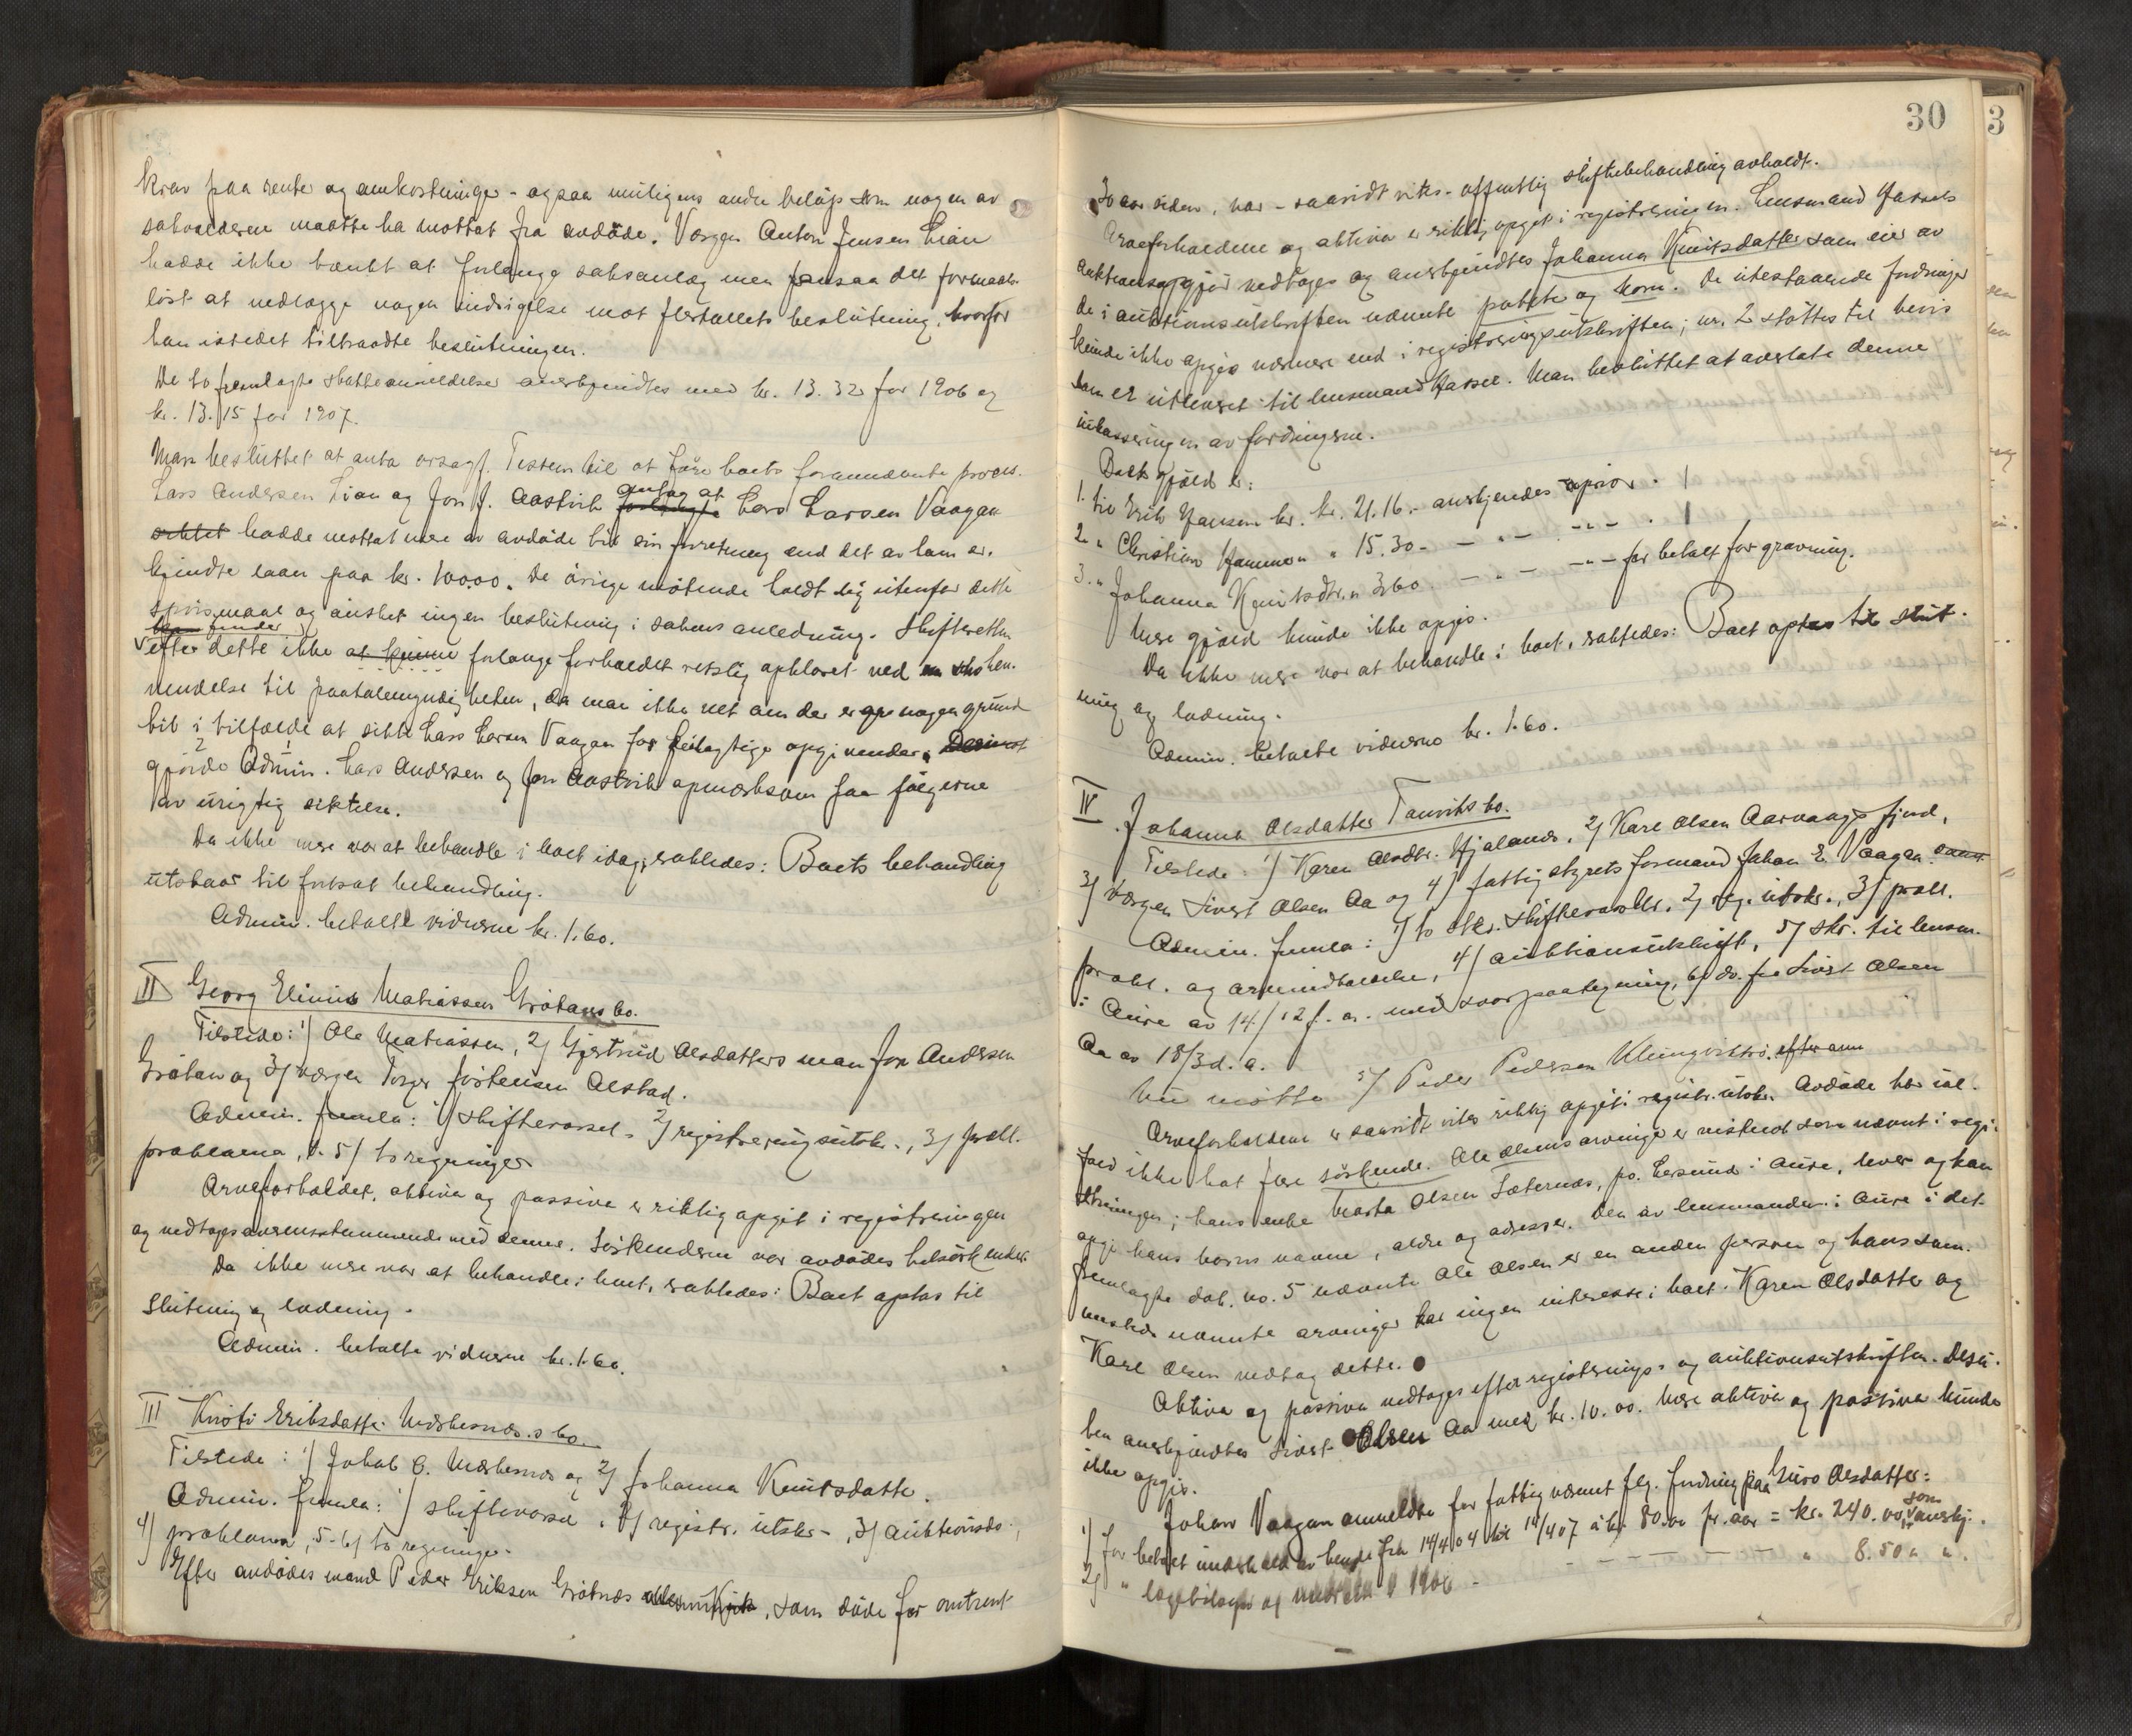 krav paa rente og omkostninger - ogsaa muligens andre beløp som nogen av
sakvolderne maatte ha mottat fra avdøde. Værgen Anton Jensen Lian
hadde ikke tænkt at forlange saksanlæg men fansaa det formaals-
løst at nedlægge nogen indsigelse mot flertallets beslutning, hvorfor
han istedet tiltraadte beslutningen.
De to fremlagte skatteanmeldelser anerkjendtes med kr. 13.32 for 1906 og
kr. 13.15 for 1907.
Man besluttet at anta orsagf. Testem til at føre boets forannævnte proces.
Lars Andersen Lian og Jon J. Aastvik antog at Lars Larsen Vaagan
hadde mottat mere av avdøde til sin forretning end det av ham er-
kjendte laan paa kr. 1000.00. De øvrige møtende holdt sig utenfor dette
spørsmaal og ønsket ingen beslutning i sakens anledning. Skifteretten
finder
efter dette ikke at kunne forlange forholdet retslig opklaret ved hen-
vendelse til paatalemyndigheten, da man ikke vet om der er nogen grund
til i tilfælde at sikte Lars Larsen Vaagan for feilagtige opgivender. Desuat
gjorde Admin. Lars Andersen og Jon Aastvik opmerksom paa følgerne
av urigtig siktelse.
Da ikke mere var at behandle i boet idag, sattedes: Boets behandling
utstaar til fortsat behandling.
Admin. betalte vidnerne kr. 1.60.
II Georg Elinius Matiassen Grøtans bo.
Tilstede: 1) Ole Matiassen, 2) Gjertrud Olsdatters man Jon Andersen
Grøtan og 3) værgen Torger Jostensen Alstad.
Admin. fremla: 1) skiftevarsel, 2) registreringsutsk., 3) prokl.
proklama, 4-5) to regninger
Arveforholdet, aktiva og passiva er riktig opgit i registreringen
og vedtages overensstemmende med denne. Søskenderne var avdødes helsøskender.
Da ikke mere var at behandle i boet, sattedes: Boet optas til
slutning og lodning.
Admin. betalte vidnerne kr. 1.60.
III Kirsti Eriksdatter Mærkesnæs.s bo.
Tilstede: 1) Jakob E. Mærkesnæs og 2) Johanna Knutsdatter.
Admin. fremla: 1) skiftevarsel, 2) registr. utskr., 3) auktionsdo.,
4) proklama, 5-6) to regninger.
Efter avdødes mand Peder Eriksen Grøtnæs, som døde for omtrent
30
30 aar siden, var - saavidt vites - offentlig skiftebehandling avholdt.
Arveforholdene og aktiva er riktig opgit i registreringen. Lensmand Hassels
auktionsopgjør vedtoges og anerkjendtes Johanna Knutsdatter som eier av
de i auktionsutskriften nævnte potete og korn. De utestaaende fordringer
kunde ikke opgis nærmere end i registreringsutskriften; nr. 2 støttes til bevis
som er utleveret til lensmand Hassel. Man besluttet at overlate denne
inkasseringen av fordringerne.
Boets gjæld er:
1. til Erik Hansen kr. kr. 21.16.- anerkjendes apriori.
2. " Christian Hammer " 15.30. - " - - " - .
3. " Johanna Knutsdtr. " 3.60. - " - - " - for betalt for gravning.
Mere gjæld kunde ikke opgis.
Da ikke mere var at behandle i boet, sattedes: Boet optas til slut-
ning og lodning.
Admin. betalte vidnerne kr. 1.60.
IV Johanna Olsdatter Tanviks bo.
Tilstede: 1) Karen Olsdtr. Hjalanes, 2) Karl Olsen Aarvaagsfjord,
3) værgen Sivert Olsen Aa og 4) fattigstyrets formand Johan E. Vaagan.
Admin. fremla: 1) to skr. skiftevarsler, 2) reg. utskr., 3) prokl.
prokl. og arveindkaldelse, 4) auktionsutskrift, 5) skr. til lensm.
i Aure av 14/12 f. a. med svarpaategning, 6) do. fra Sivert Olsen
Aa av 18/3 d. a.
Nu møtte 5) Peder Pedersen Klungvikbo, eftermn
Arveforholdene er saavidt vites riktig opgit i registr. utskr. Avdøde har ial-
fald ikke hat flere søskende. Ole Olsens arvinger er mistænt som nævnt i regi-
streringen; hans enke Marta Olsen Sæternæs, po. Lersund i Aure, lever og kan
opgi hans barns navne, aldre og adresser. Den av lensmanden i Aure i det
fremlagte dok. no. 5 nævnte Ole Olsen er en anden person og hans sam-
mesteds nævnte arvinger har ingen interesse i boet. Karen Olsdatter og
Karl Olsen vedtog dette.
Aktiva og passiva vedtages efter registrerings- og auktionsutskriften. Desu-
ten anerkjendtes Sivert Olsen Aa med kr. 10.00. Mere aktiva og passiva kunde
ikke opgis.
Johan Vaagan anmeldte for fattigvæsnet flg. fordring paa Guro Olsdatter:
1) for betalt underhold av hende fra 14/4 04 til 14/4 07 à kr. 80.00 pr. aar = kr. 240.00, som anerkj.
2) " lægetilsyn og medicin i 1906 - - - - - - " 8.50 " ".